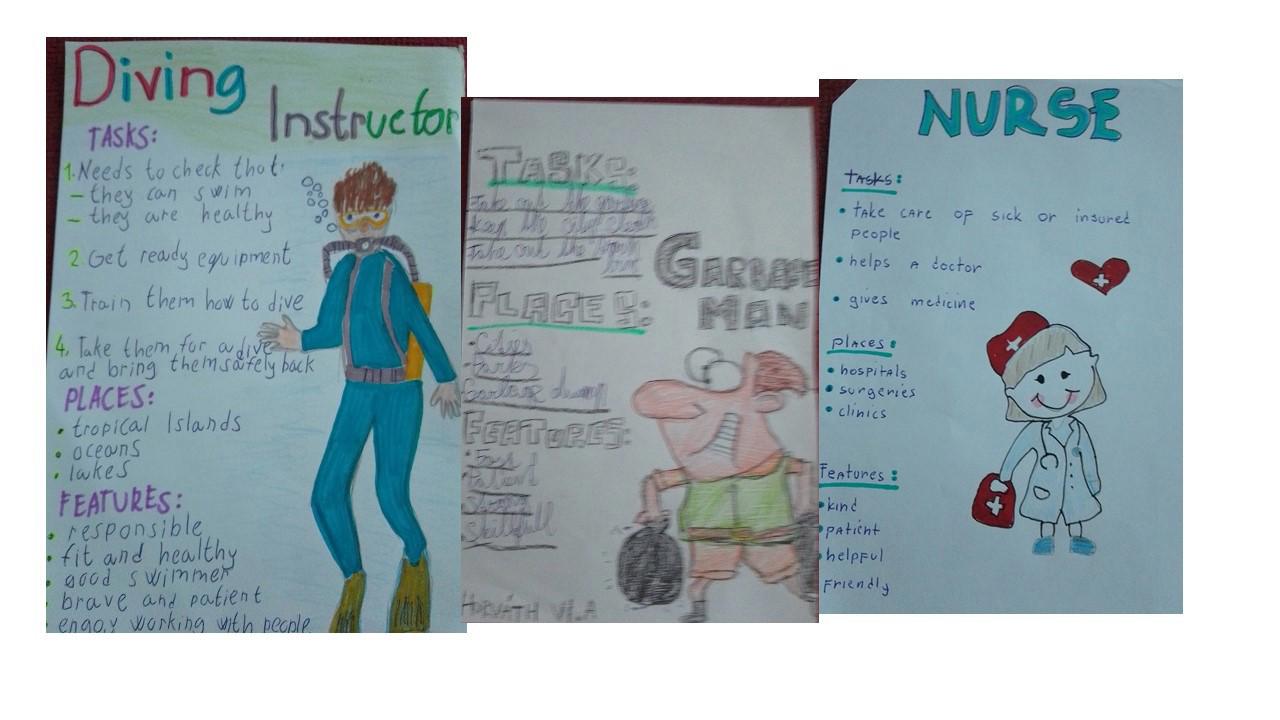 Diving
Instructor
TASKS:
1. Needs to check that:
– they can swim
– they are healthy
2. Get ready equipment
3. Train them how to dive
4. Take them for a dive
and bring them safely back
PLACES:
• tropical Islands
• oceans
• lakes
FEATURES:
• responsible
• fit and healthy
• good swimmer
• brave and patient
• engoy working with people
GARBAGE
MAN
TASKS:
take out the
keep the city clean
take out the
PLACES:
• Cities
• Parks
Garbage dump
FEATURES:
Patient
Strong
Skillfull
HORVÁTH VI.A
NURSE
TASKS:
• take care of sick or insured
people
• helps a doctor
• gives medicine
places:
• hospitals
• surgeries
• clinics
Features:
• kind
• patient
• helpful
Friendly